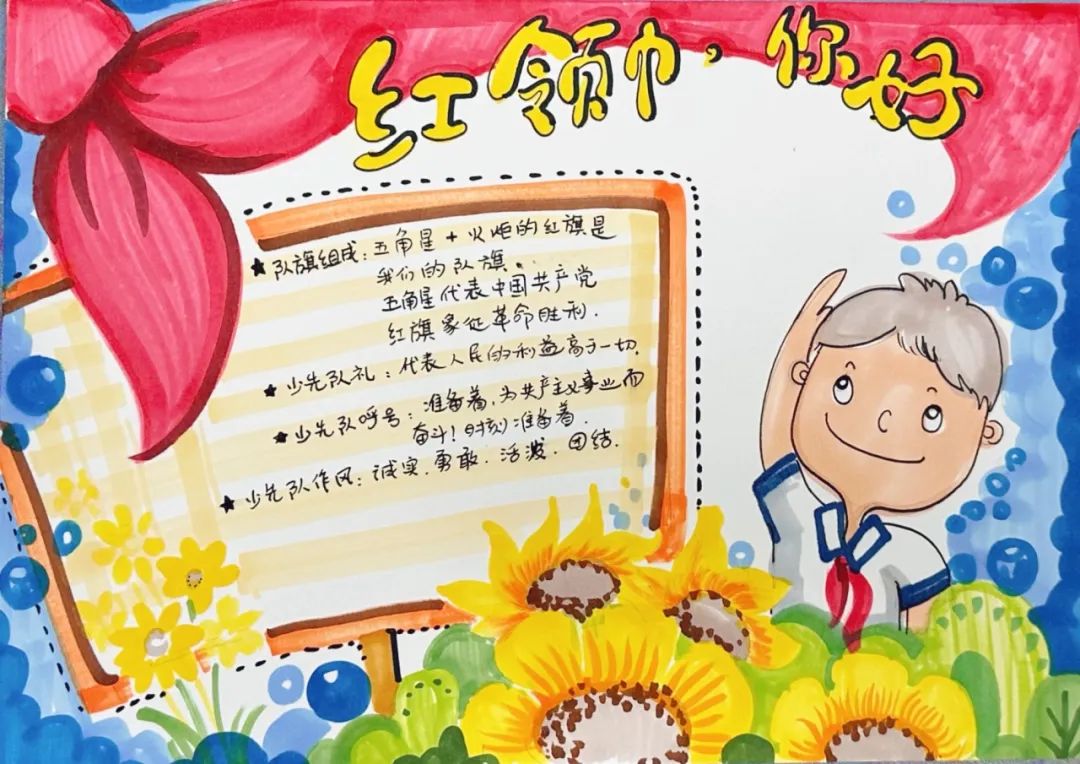 红领巾，你好
★队旗组成：五角星+火炬的红旗是
我们的队旗.
五角星代表中国共产党
红旗象征革命胜利.
★少先队礼：代表人民的利益高于一切.
★少先队呼号：准备着，为共产主义事业而
奋斗！时刻准备着.
★少先队作风：诚实.勇敢.活泼.团结.